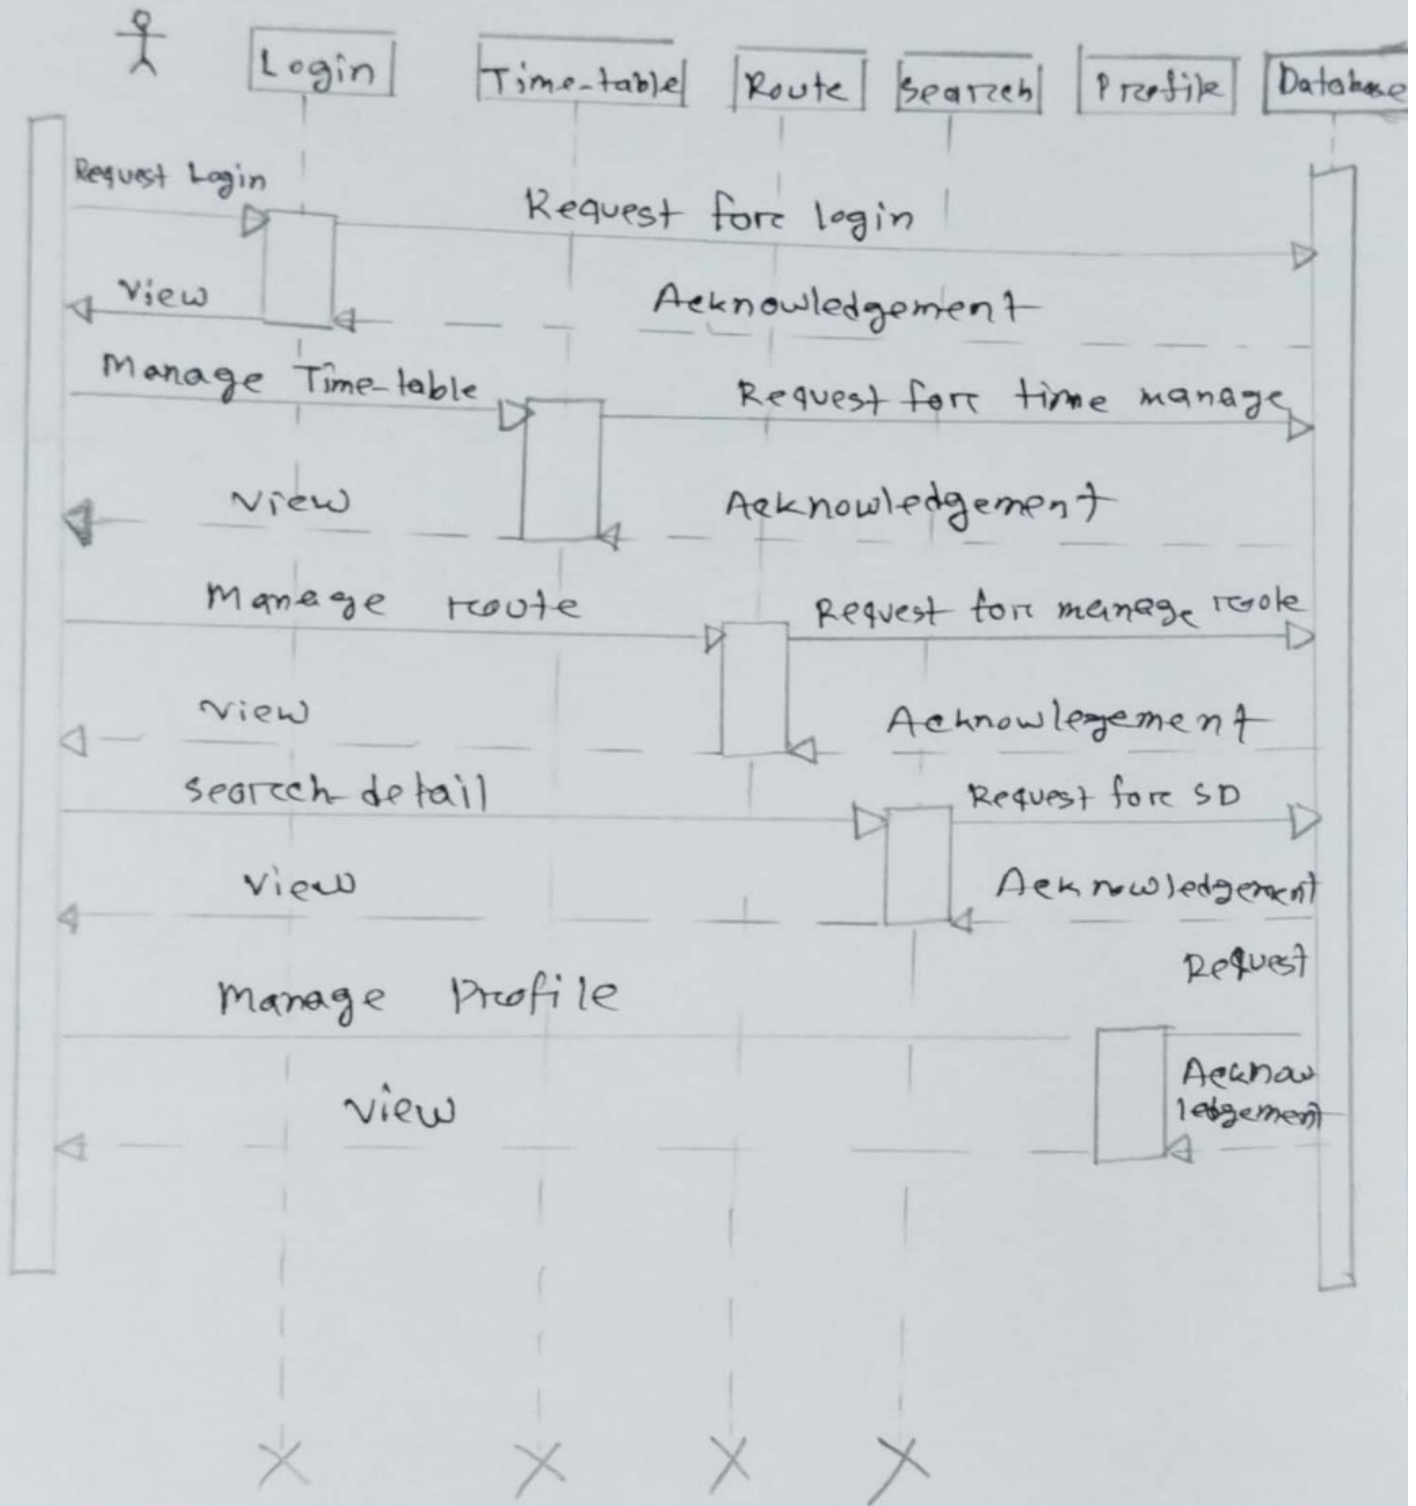 Login
Time-table
Route
Search
Profile
Database
Request Login
Request for login
View
Acknowledgement
Manage Time-table
Request for time manage
View
Acknowledgement
Manage route
Request for manage
View
Acknowlegement
search detail
Request for SD
View
Acknowledgement
Request
Manage Profile
Acknow
ledgement
View